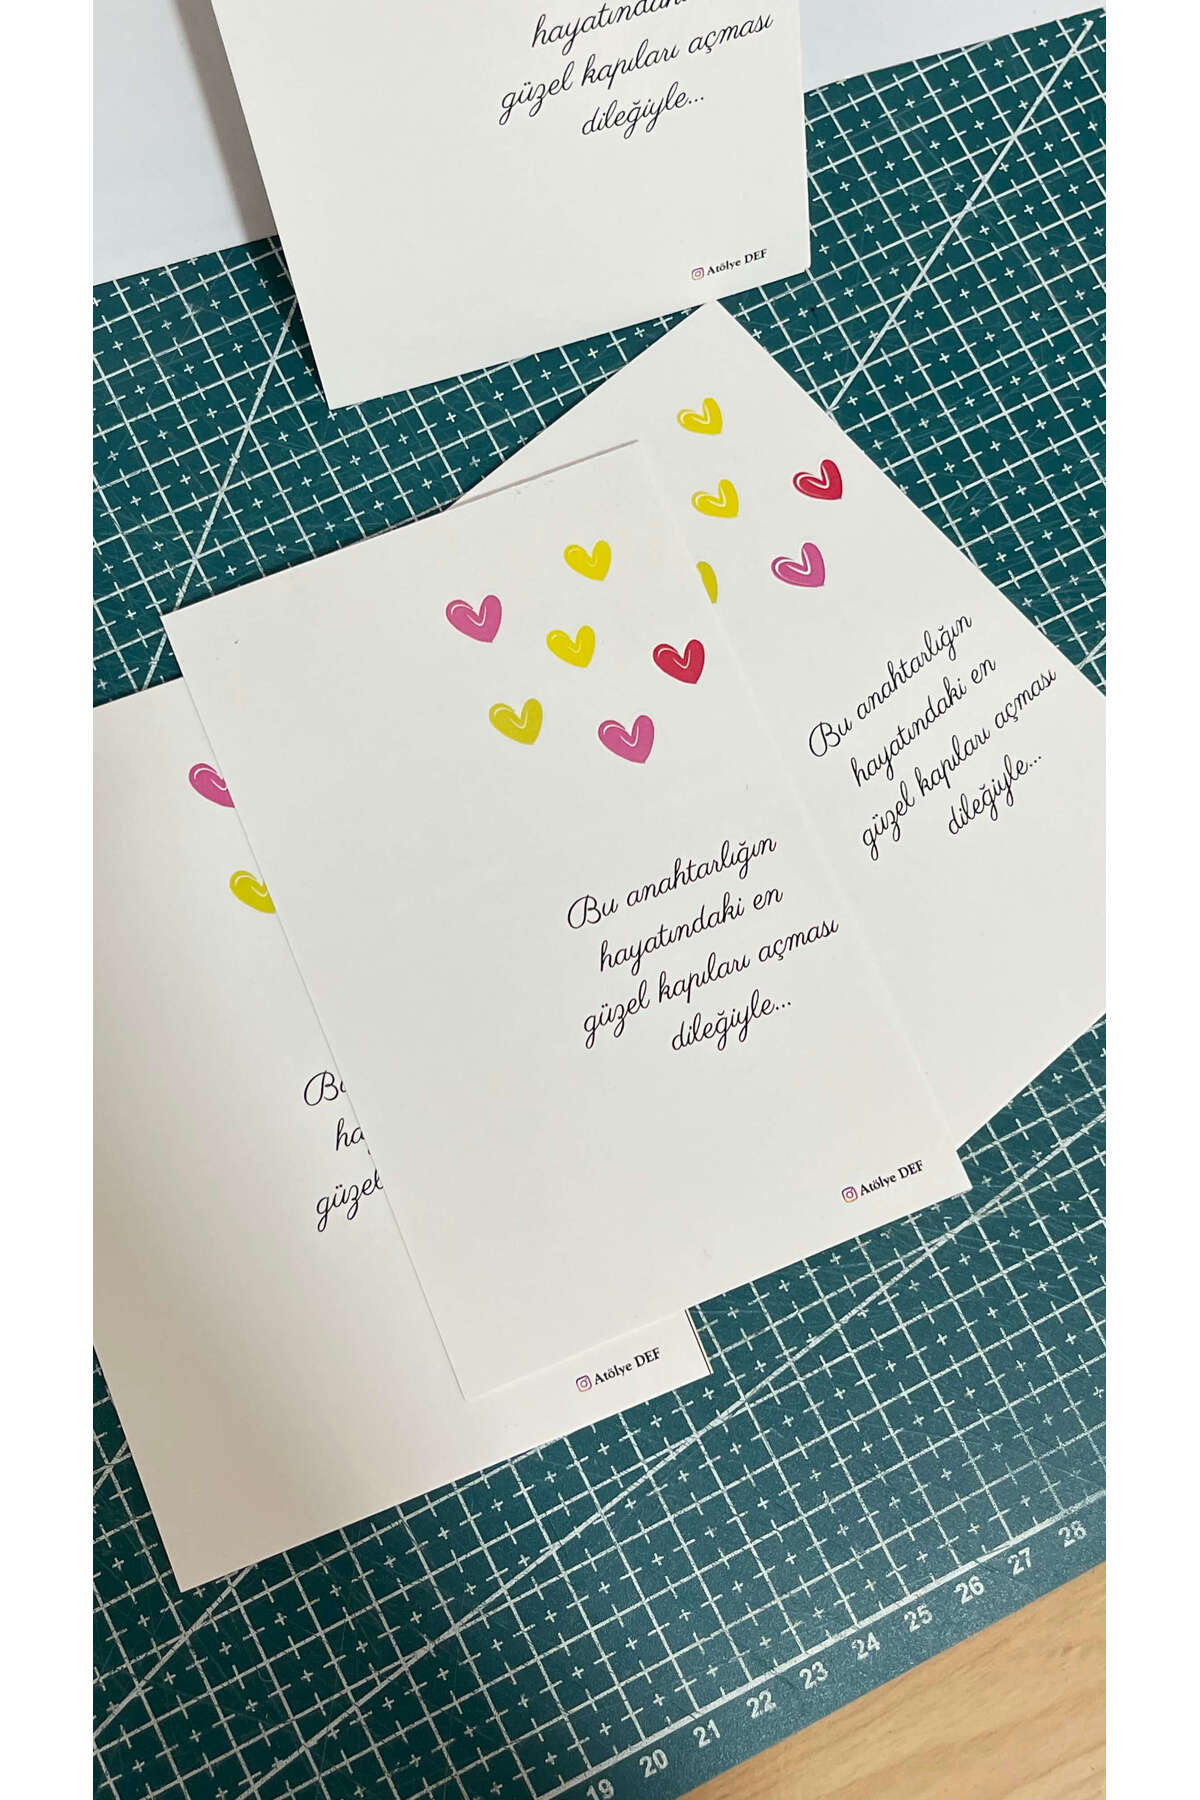 güzel kapıları açması
dileğiyle...
Atölye DEF
Bu anahtarlığın
hayatındaki en
güzel kapıları açması
dileğiyle...
Bu anahtarlığın
hayatındaki en
güzel kapıları açması
dileğiyle...
Atölye DEF
güzel
Atölye DEF
19 20 21 22 23 24 25 26 27 28